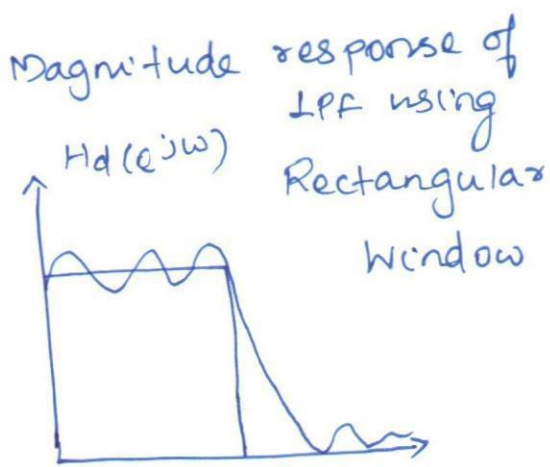 Magnitude response of
LPF using
Hd(e^jω)
Rectangular
Window